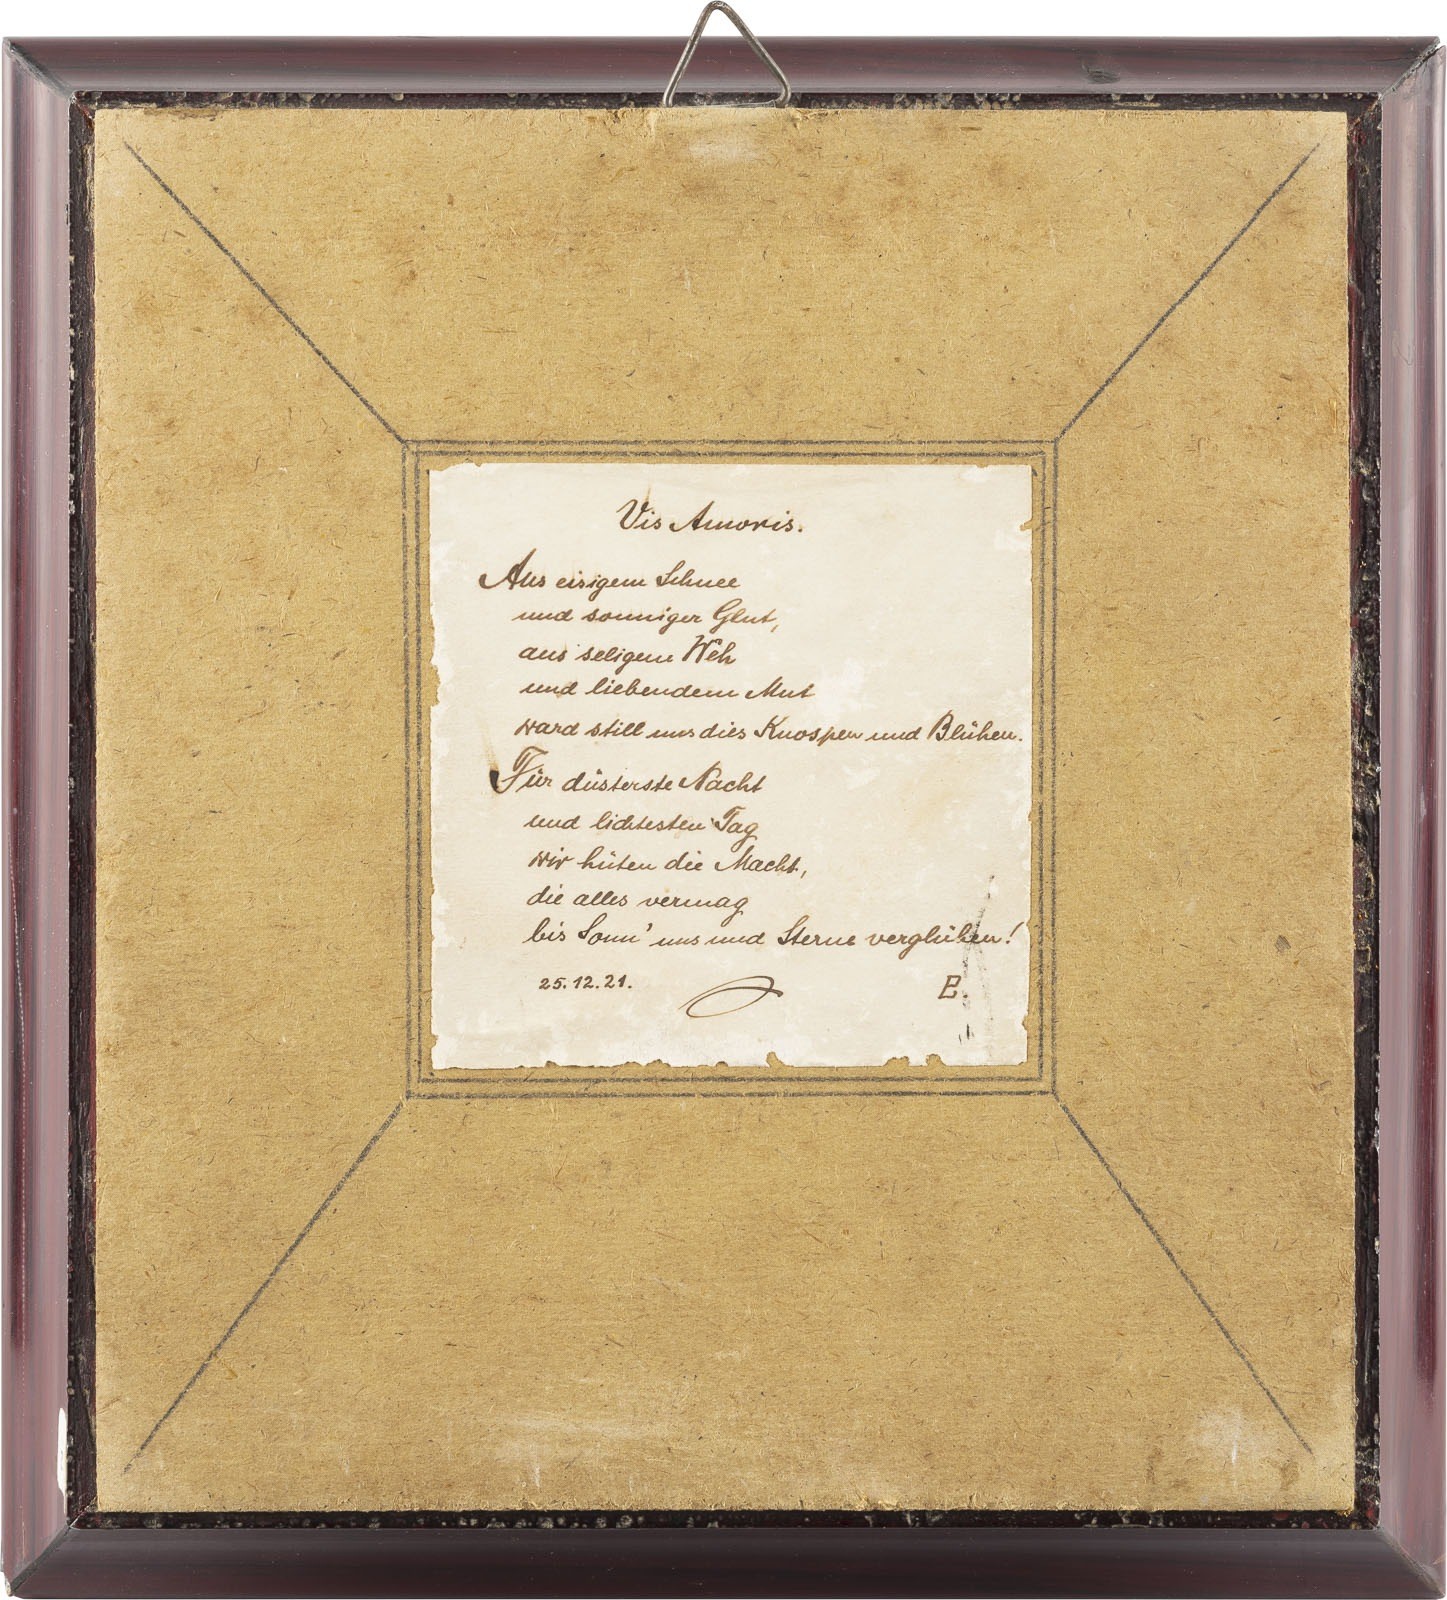 Vis Amoris.
Aus eisigem Schnee
und sonniger Glut,
aus seligem Weh
und liebendem Mut
ward still uns dies Knospen und Blühen.
Für düsterste Nacht
und lichtesten Tag
wir hüten die Macht,
die alles vermag
bis Sonn' uns und Sterne verglühen!
25.12.21. E.